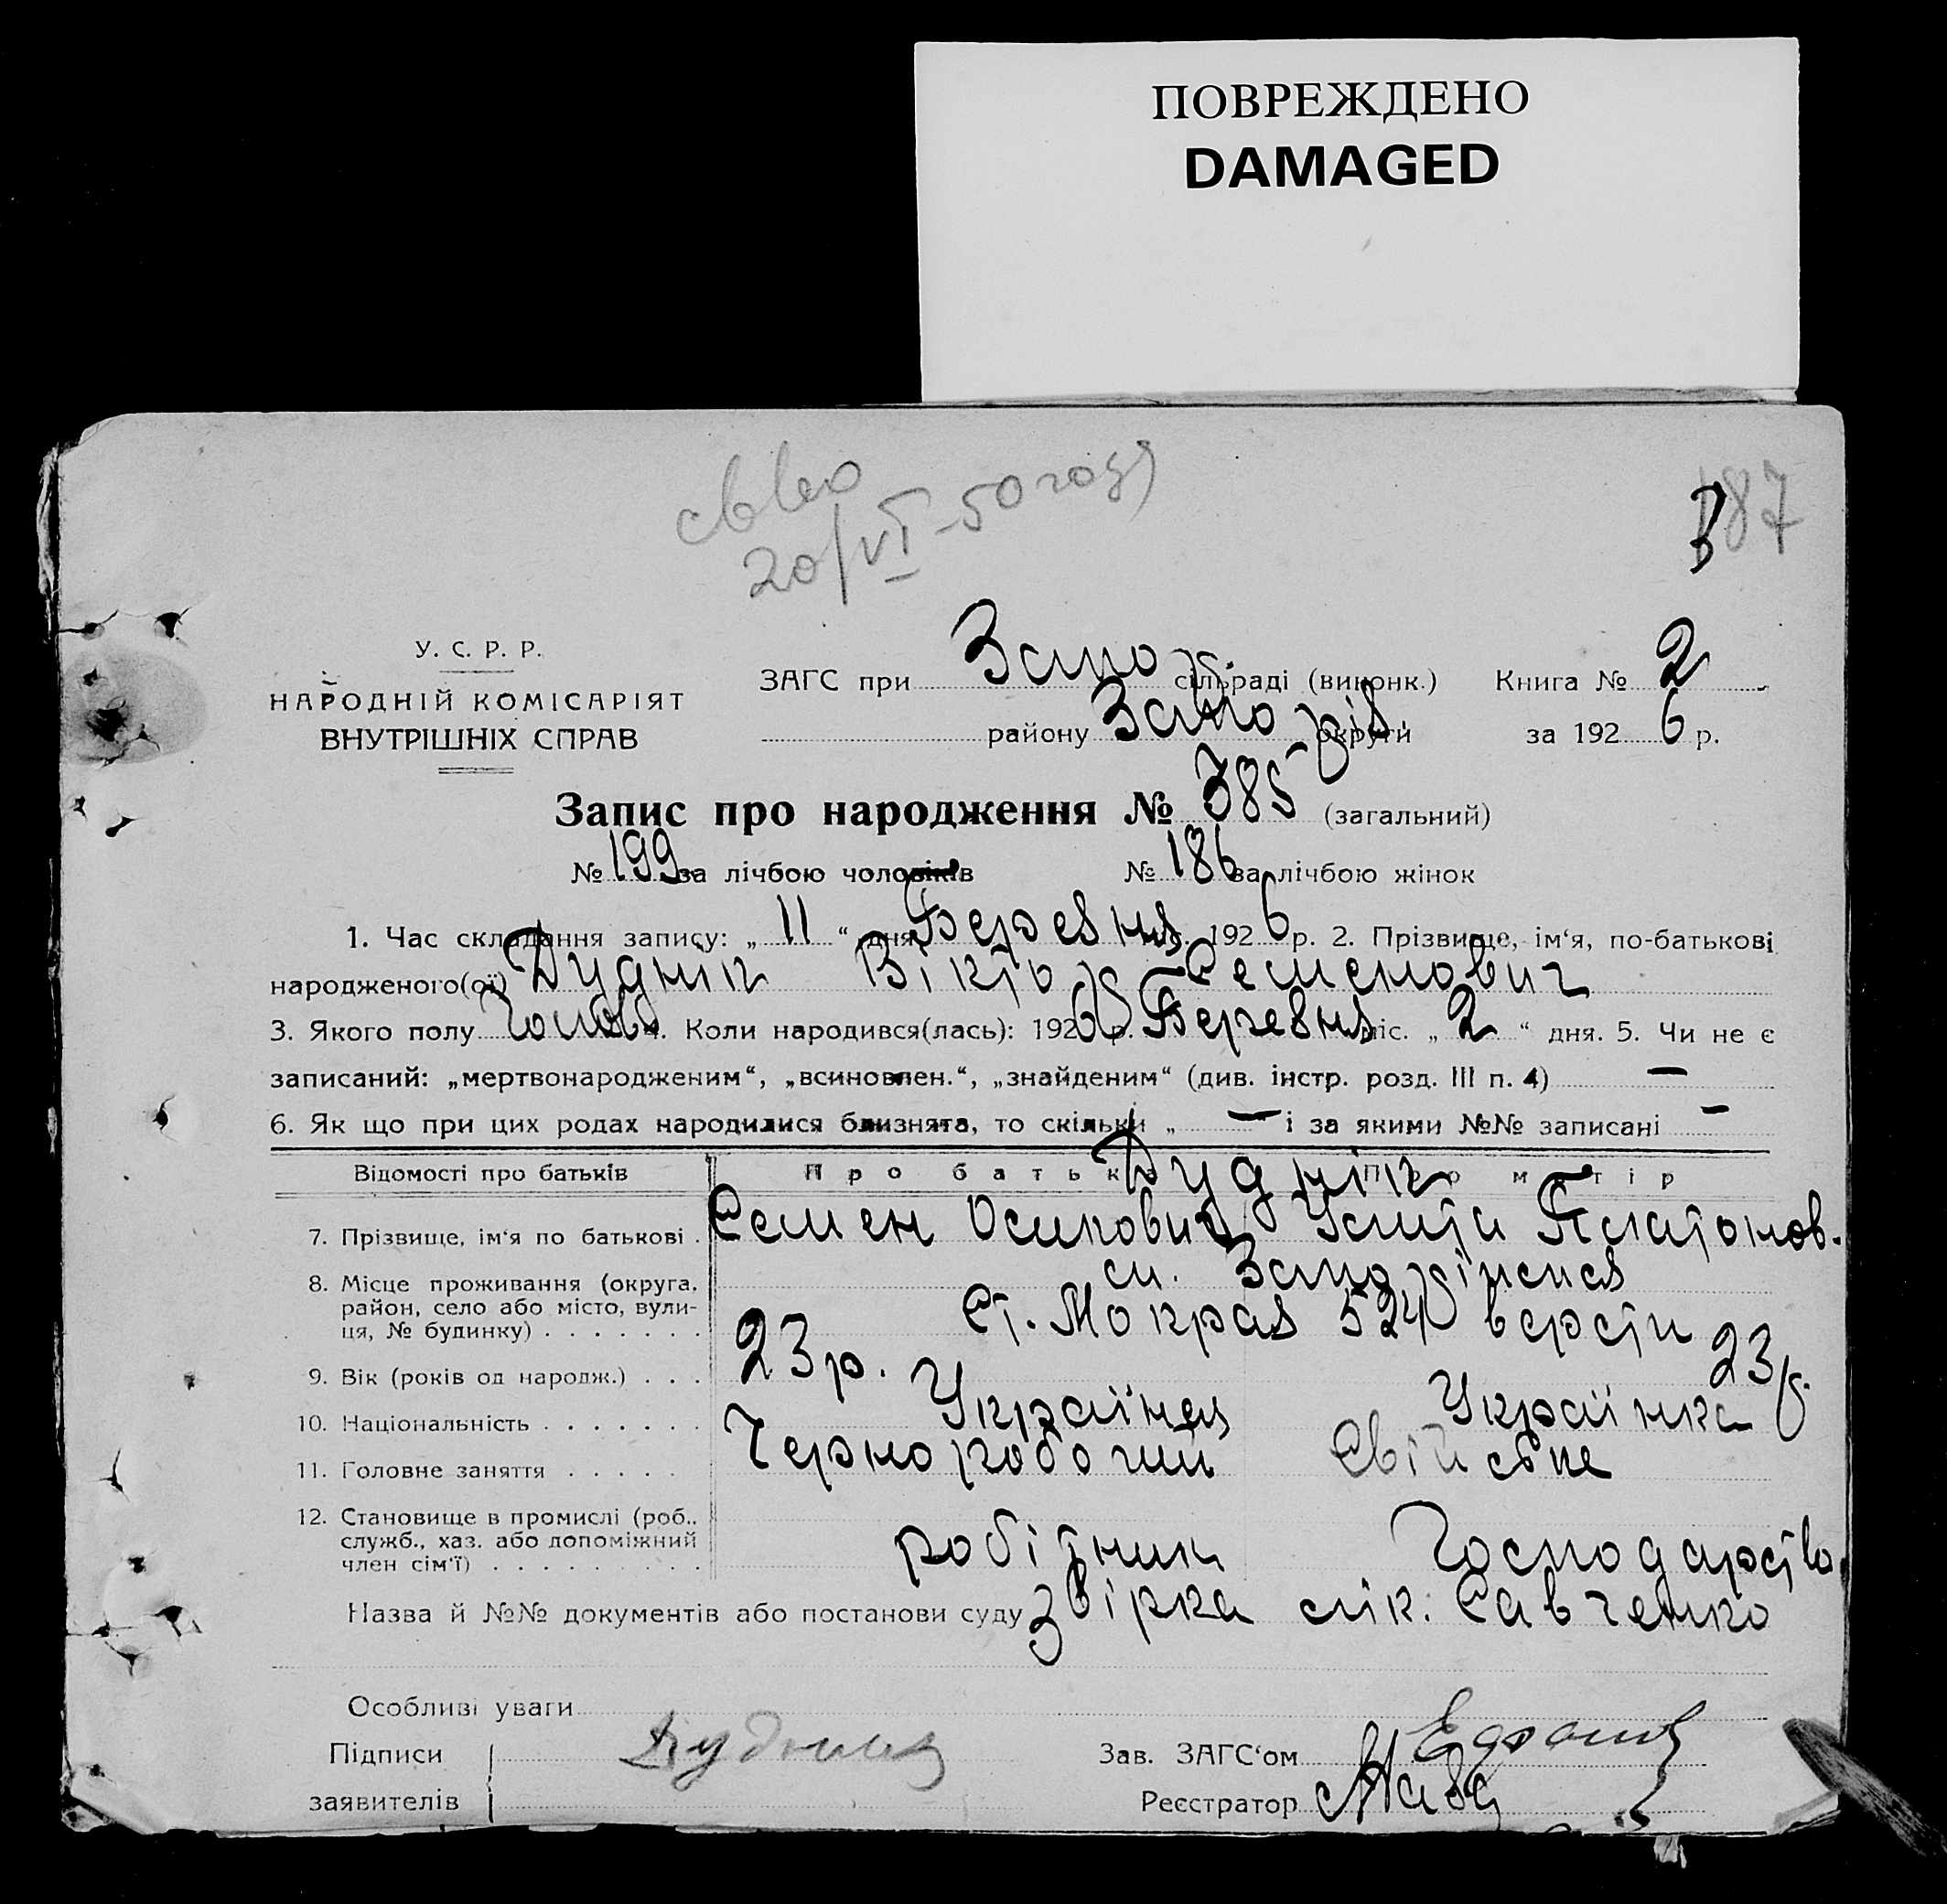 ПОВРЕЖДЕНО
DAMAGED
20/VI-50 году
187
У. С. Р. Р.
НАРОДНІЙ КОМІСАРІЯТ
ВНУТРІШНІХ СПРАВ
ЗАГС при Запор. сільраді (виконк.) Книга № 2
району Запоріз. округи за 1926 р.
Запис про народження № 385 (загальний)
№ 199 за лічбою чоловіків № 186 за лічбою жінок
1. Час складання запису: „11“ дня Березня 1926 р. 2. Прізвище, ім‘я, по-батькові
народженого(ої) Дуднік Віктор Семенович
3. Якого полу Чолов. 4. Коли народився(лась): 1926 р. Березня міс. „2“ дня. 5. Чи не є
записаний: „мертвонародженим“, „всиновлен.“, „знайденим“ (див. інстр. розд. III п. 4) —
6. Як що при цих родах народилися близнята, то скільки „ — і за якими №№ записані —
Відомості про батьків Про батька Про матір
Дуднік
7. Прізвище, ім‘я по батькові . Семен Осипович Устя Платонов.
8. Місце проживання (округа,
район, село або місто, вули-
ця, № будинку) . . . . . . .
ст. Мокрая 524 версти
9. Вік (років од народж.) . . . 23 р. 23 р.
10. Національність . . . . . . . Українец Українка
11. Головне заняття . . . . . Черноробочий Свійське
12. Становище в промислі (роб.,
служб., хаз. або допоміжний
член сім‘ї) . . . . . . . . . робітник Господарство
Назва й №№ документів або постанови суду звірка лік. Савченко
Особливі уваги
Підписи Дудник Зав. ЗАГС‘ом
заявителів Реєстратор